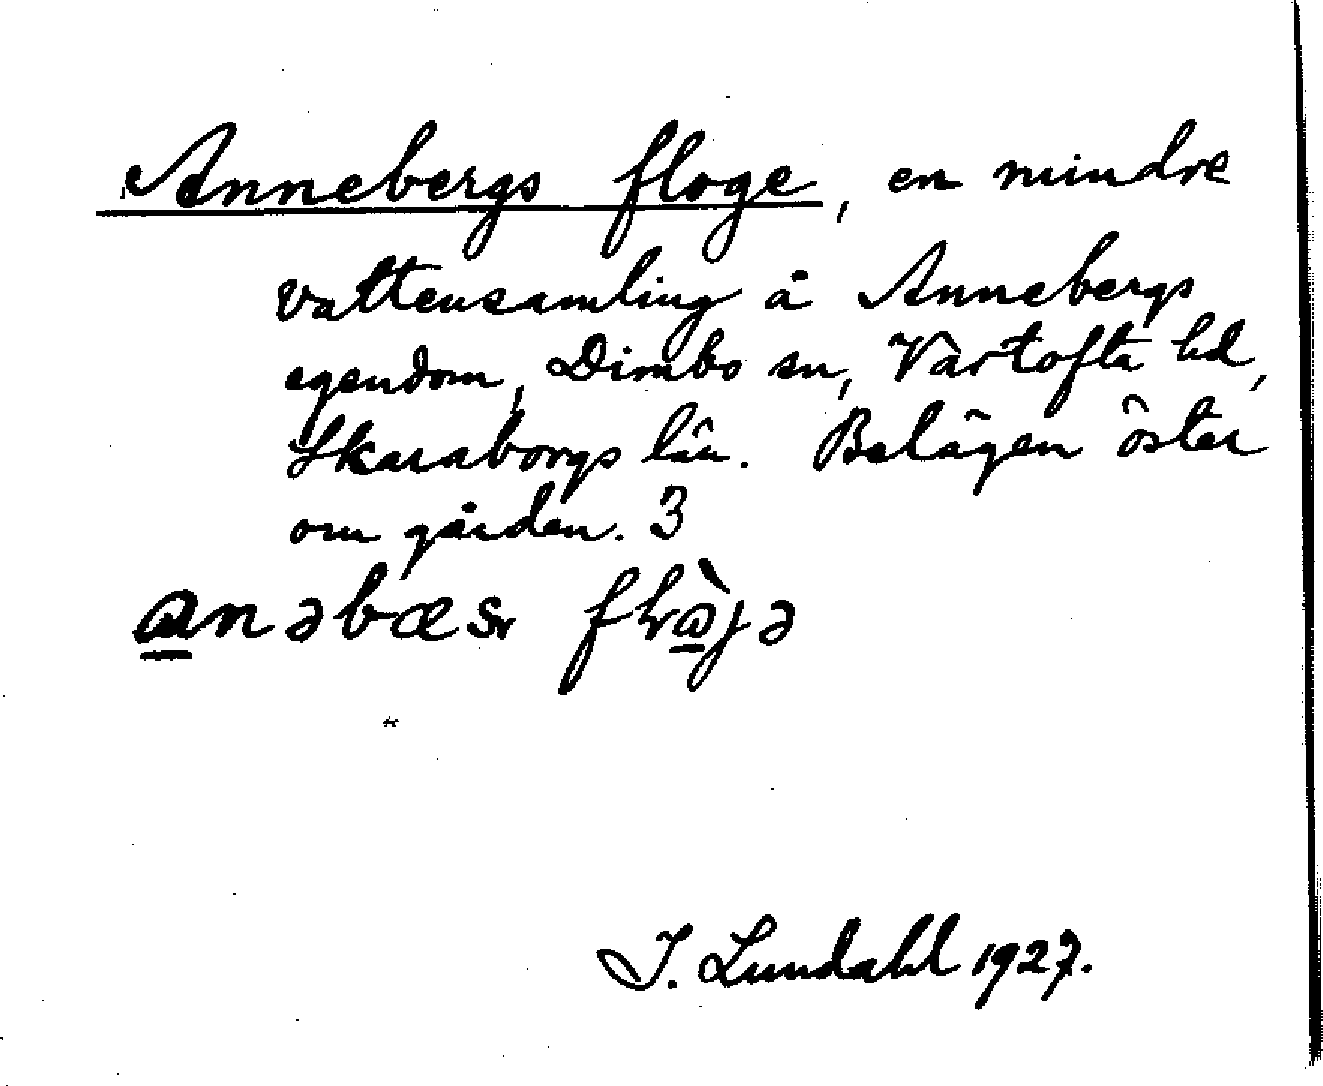 Annebergs floge, en mindre
vattensamling å Annebergs
egendom, Dimbo sn, Vartofta hd,
Skaraborgs län. Belägen öster
om gården. 3
I. Lundahl 1927.